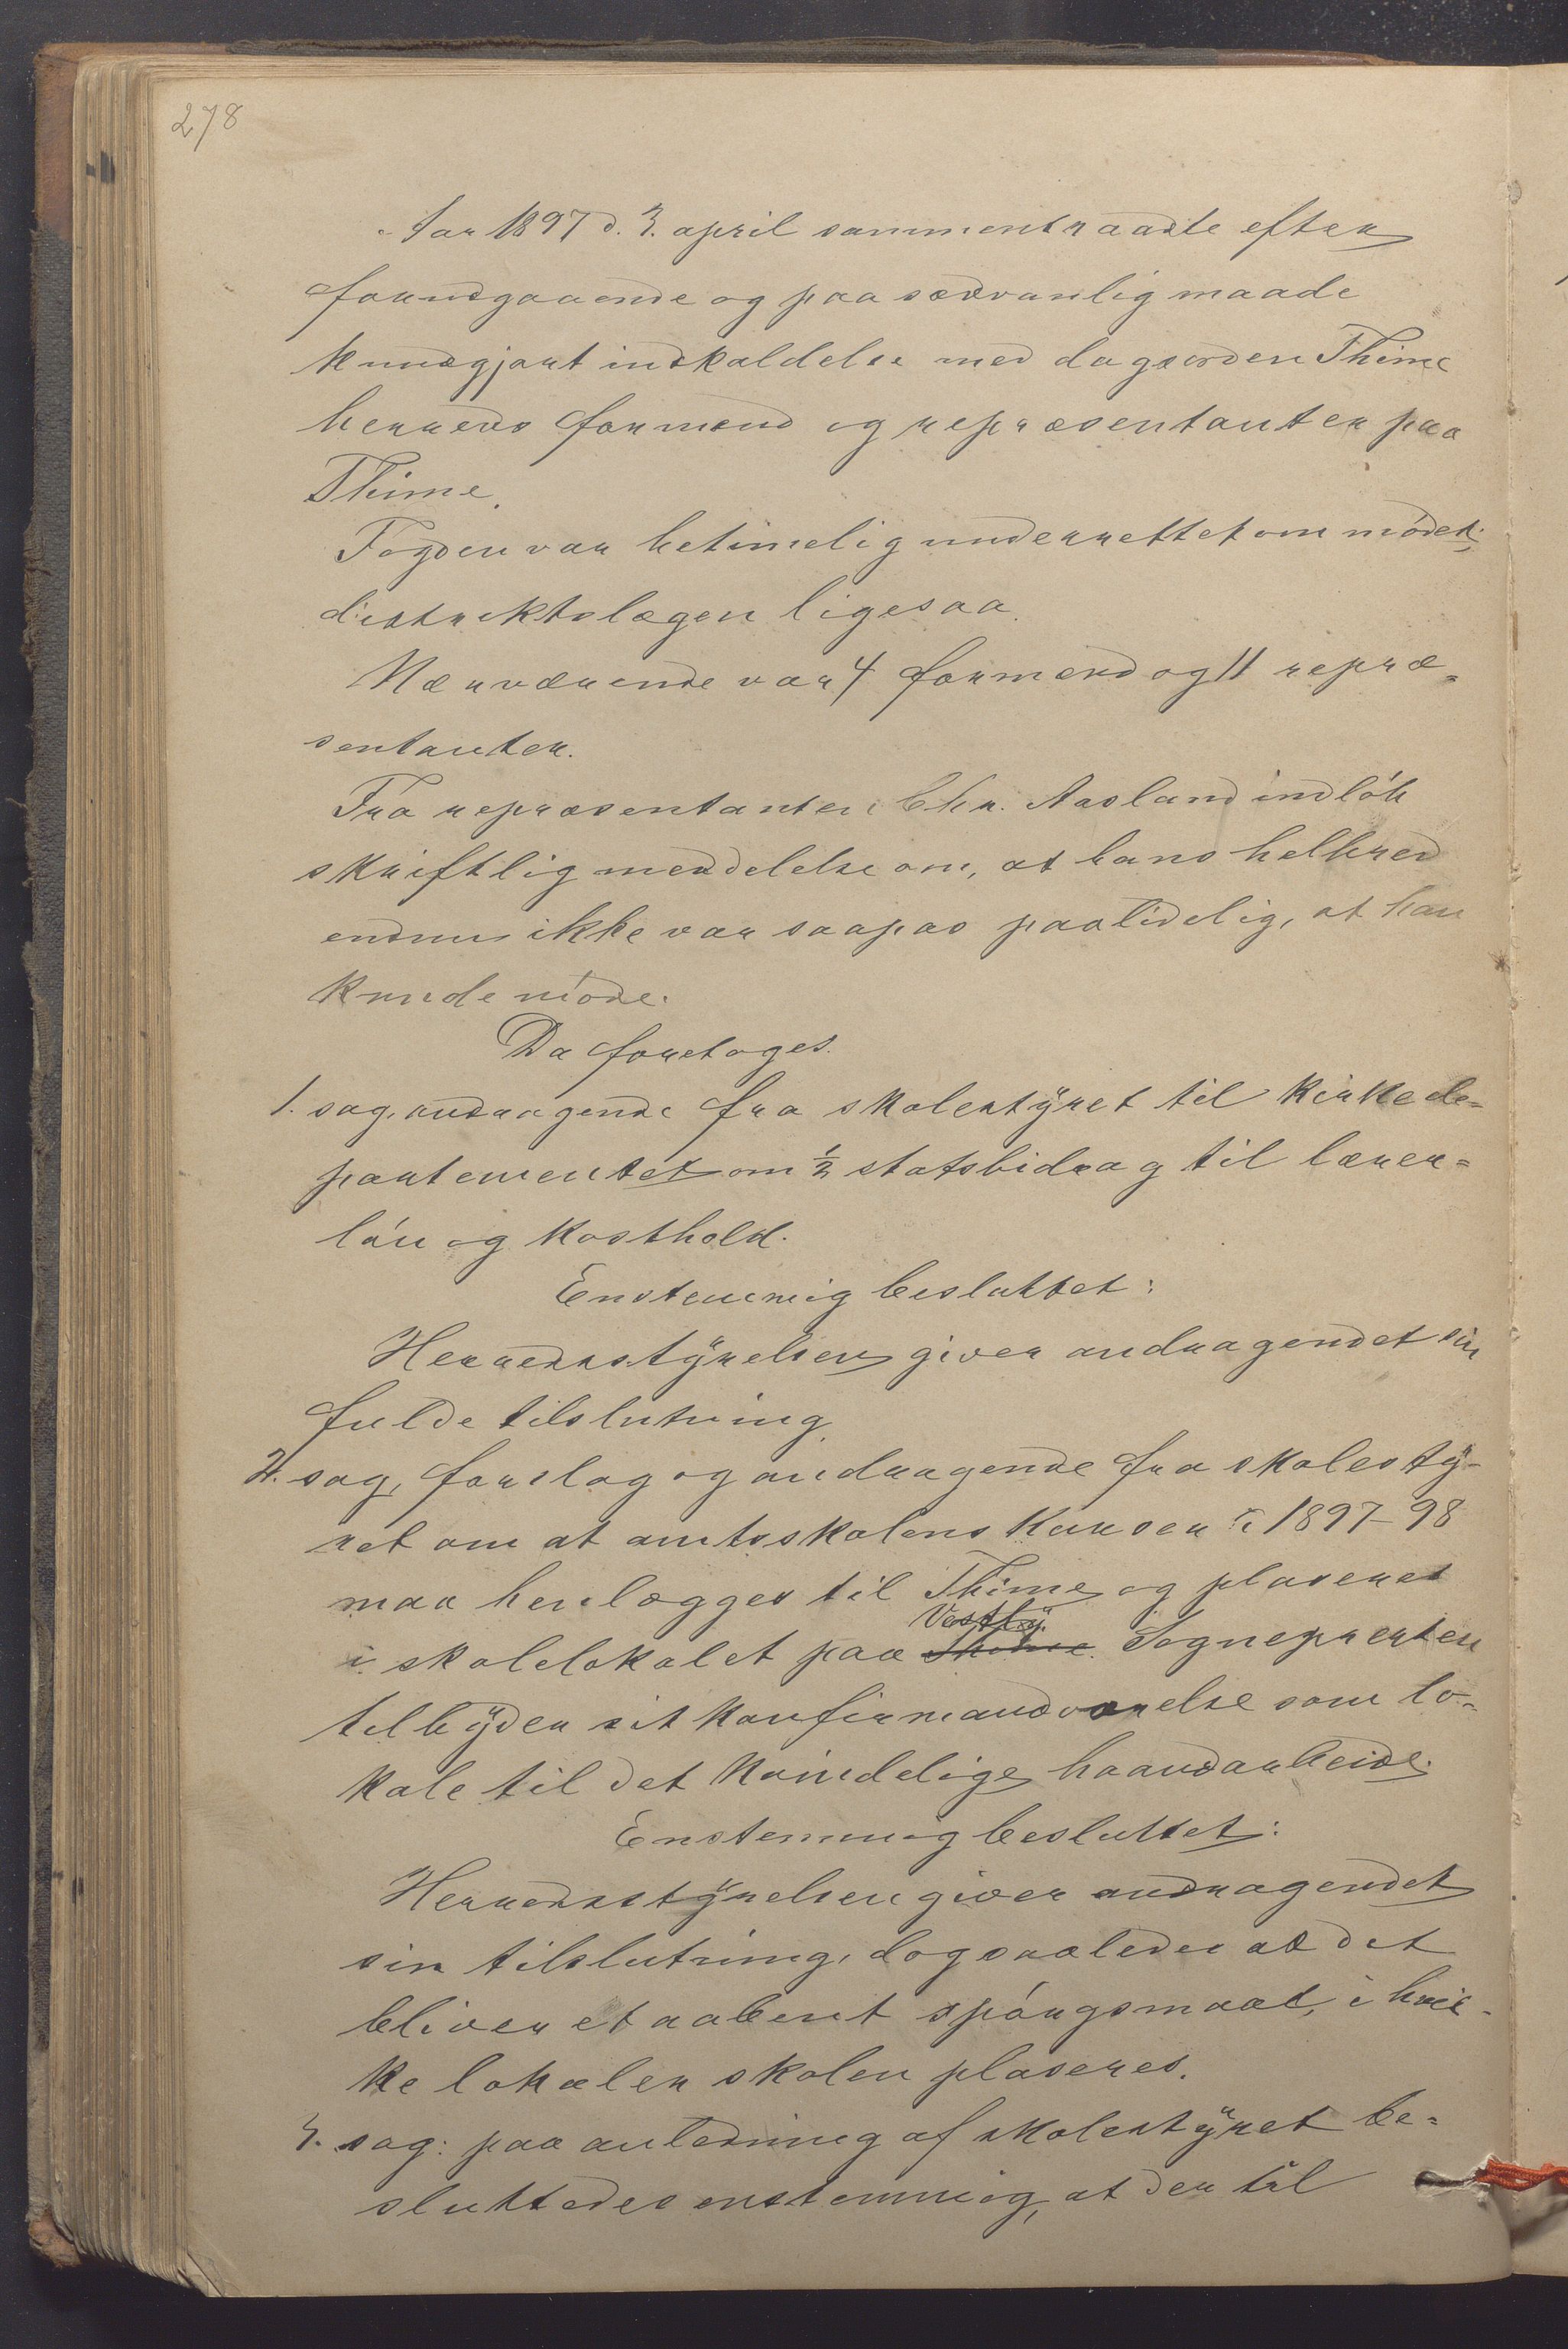 278
Aar 1897 d. 3. april sammentraadte efter
forudgaaende og paa sædvanlig maade
kundgjort indkaldelse med dagsorden Thime
herreds formænd og repræsentanter paa
Thime.
Fogden var betimelig underrettet om mödet;
distriktslægen ligesaa.
Nærværende var 4 formænd og 11 repræ-
sentanter.
Fra repræsentanten Chr. Aasland indlöb
skriftlig meddelelse om, at hans helbred
endnu ikke var saapas paalidelig, at han
kunde möde.
Da foretoges.
1. sag, andragende fra skolestÿret til kirkede-
partementet om ½ statsbidrag til lærer-
lön og kosthold.
Enstemmig besluttet:
Herredsstÿrelsen giver andragendet sin
fulde tilslutning.
2. sag, forslag og andragende fra skolestÿ-
ret om at amtsskolens kurser i 1897-98
maa henlægges til Thime og plaseres
i skolelokalet paa Thime. Vestlÿ. Sognepresten
tilbÿder sit konfirmandværelse som lo-
kale til det kvindelige haandarbeide.
Enstemmig besluttet:
Herredsstÿrelsen giver andragendet
sin tilslutning, dog saaledes at det
bliver et aabent spörgsmaal, i hvil-
ke lokaler skolen plaseres.
3. sag: paa anledning af skolestÿret be-
sluttedes enstemmig, at der til